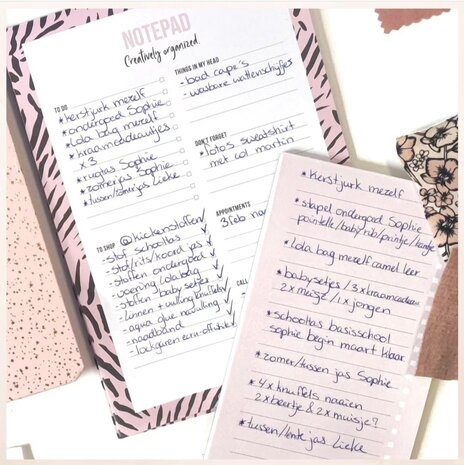 NOTEPAD
Creatively organized.
TO DO
*kerstjurk mezelf
*ondergoed Sophie
*lola bag mezelf
*kraamcadeautjes
x 3
*rugtas Sophie
*zomerjas Sophie
*tussen/zomerjas Lieke
THINGS IN MY HEAD
- bad cape's
- wasbare wattenschijfjes
DON'T FORGET
*foto's sweatshirt
met col martin
APPOINTMENTS
3 feb na
CALL
TO SHOP
@kickenstoffen
-stof schooltas
-stof/rits/koord jas
-stoffen ondergoed
-voering lola bag
-stoffen babysetjes
-linnen + vulling knuffels
-aqua glue navulling
-naadband
-lockgaren ecru-offwhite
*kerstjurk mezelf
*stapel ondergoed Sophie
pointelle/baby rib/printje/kantje
*lola bag mezelf camel leer
*babysetjes / 3x kraamcadeau
2x meisje / 1x jongen
*schooltas basisschool
Sophie begin maart klaar
*zomer/tussen jas Sophie
*4x knuffels naaien
2x beertje & 2x muisje?
*tussen/lente jas Lieke